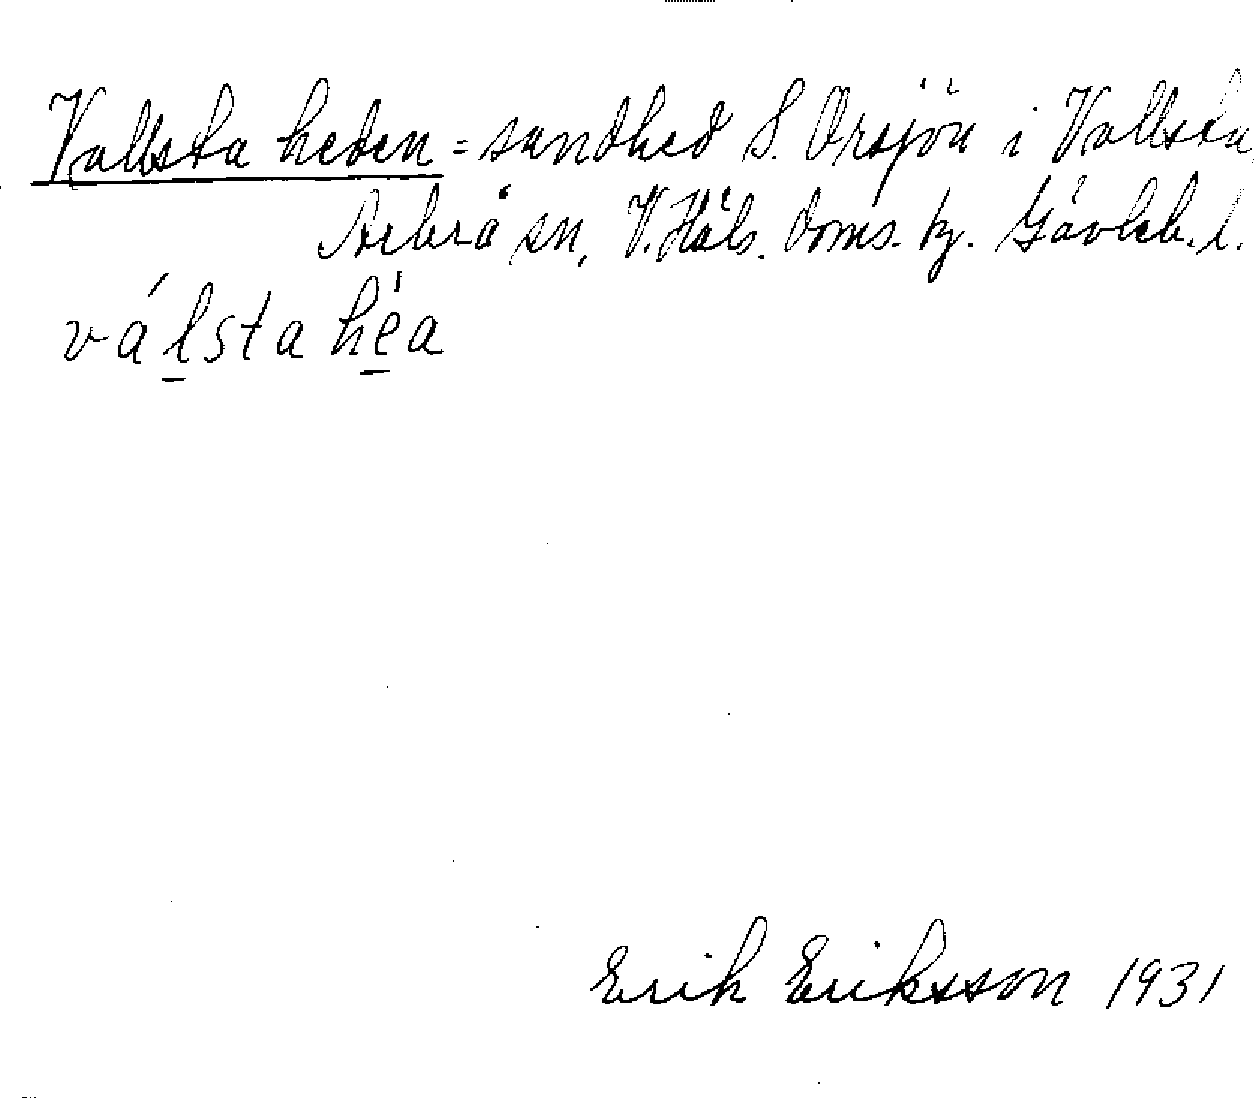 Vallsta heden = sandhed S. Orsjön i Vallsta,
Arbrå sn, V. Häls. doms. tg. Gävleb. l.
válsta héa
Erik Eriksson 1931